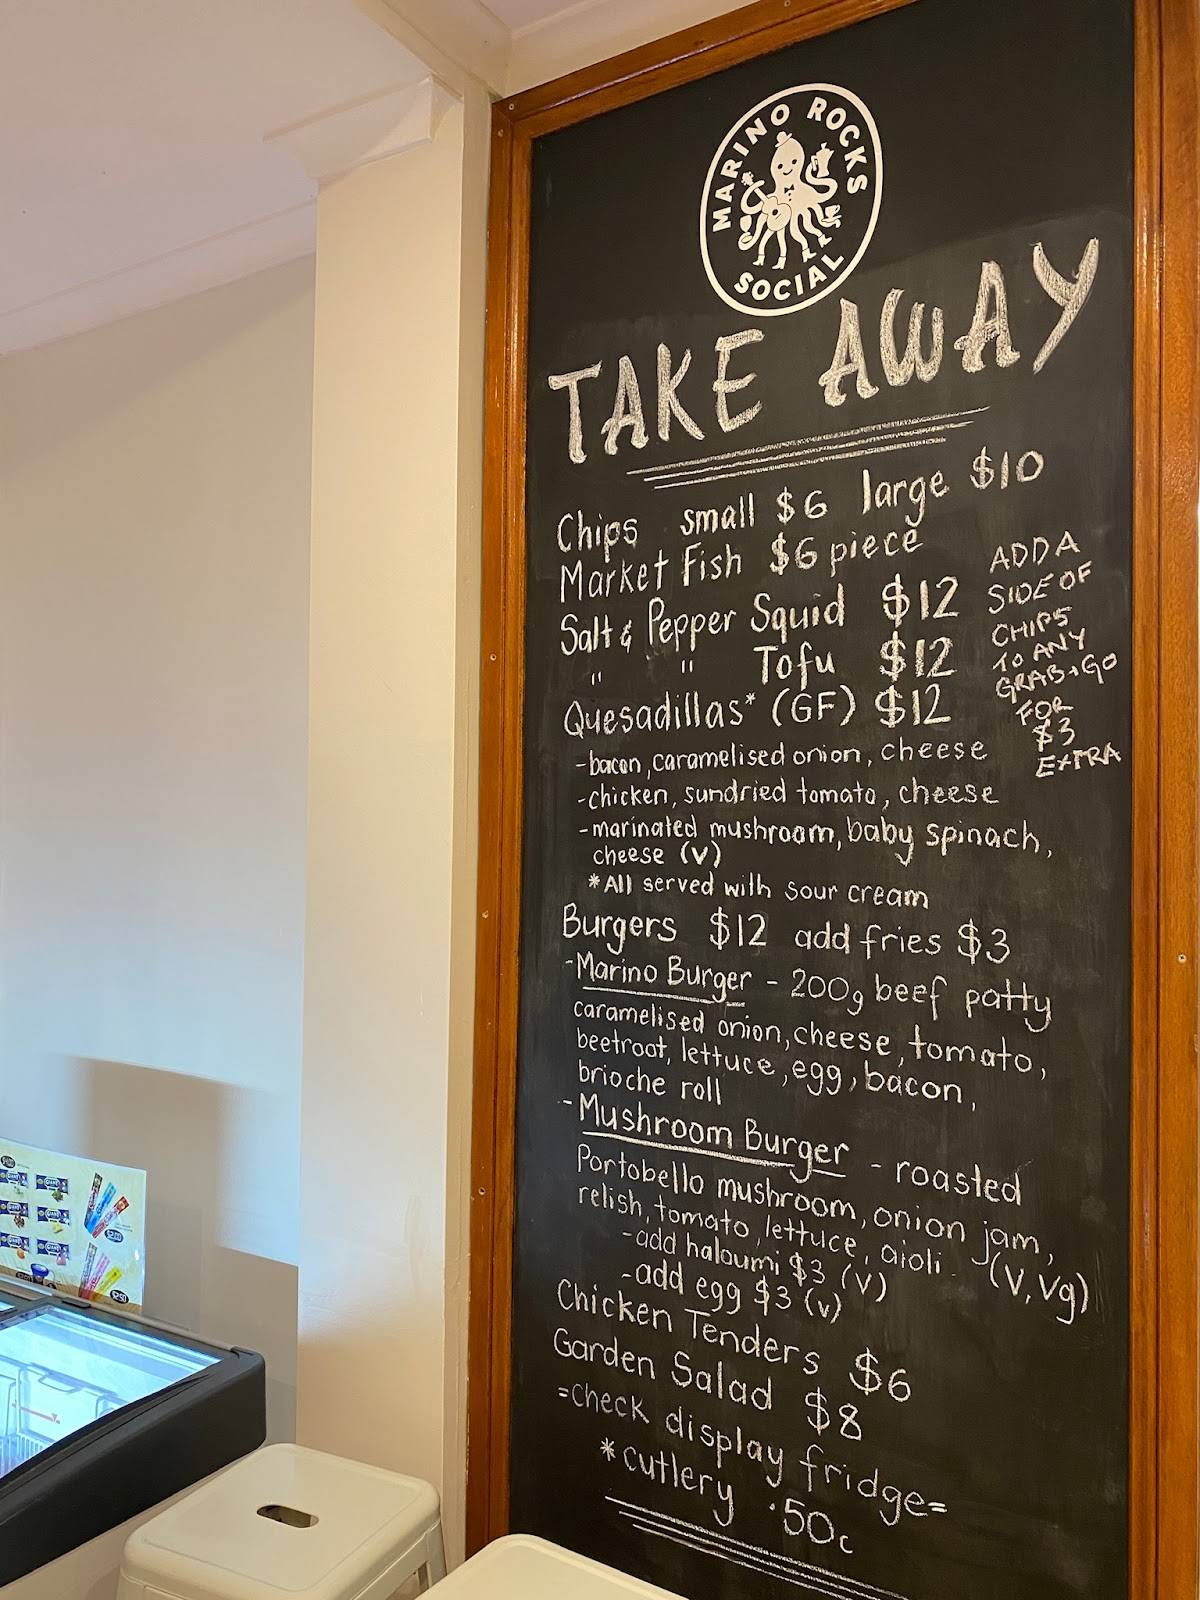 MARINO ROCKS
SOCIAL
TAKE AWAY
Chips small $6 large $10
Market Fish $6 piece
Salt & Pepper Squid $12
" " Tofu $12
Quesadillas* (GF) $12
-bacon, caramelised onion, cheese
-chicken, sundried tomato, cheese
-marinated mushroom, baby spinach,
cheese (V)
*All served with sour cream
ADD A
SIDE OF
CHIPS
TO ANY
GRAB+GO
FOR
$3
EXTRA
Burgers $12 add fries $3
-Marino Burger - 200g beef patty
caramelised onion, cheese, tomato,
beetroot, lettuce, egg, bacon,
brioche roll
-Mushroom Burger - roasted
Portobello mushroom, onion jam,
relish, tomato, lettuce, aioli (V, Vg)
-add haloumi $3 (V)
-add egg $3 (v)
Chicken Tenders $6
Garden Salad $8
=check display fridge=
*cutlery .50c